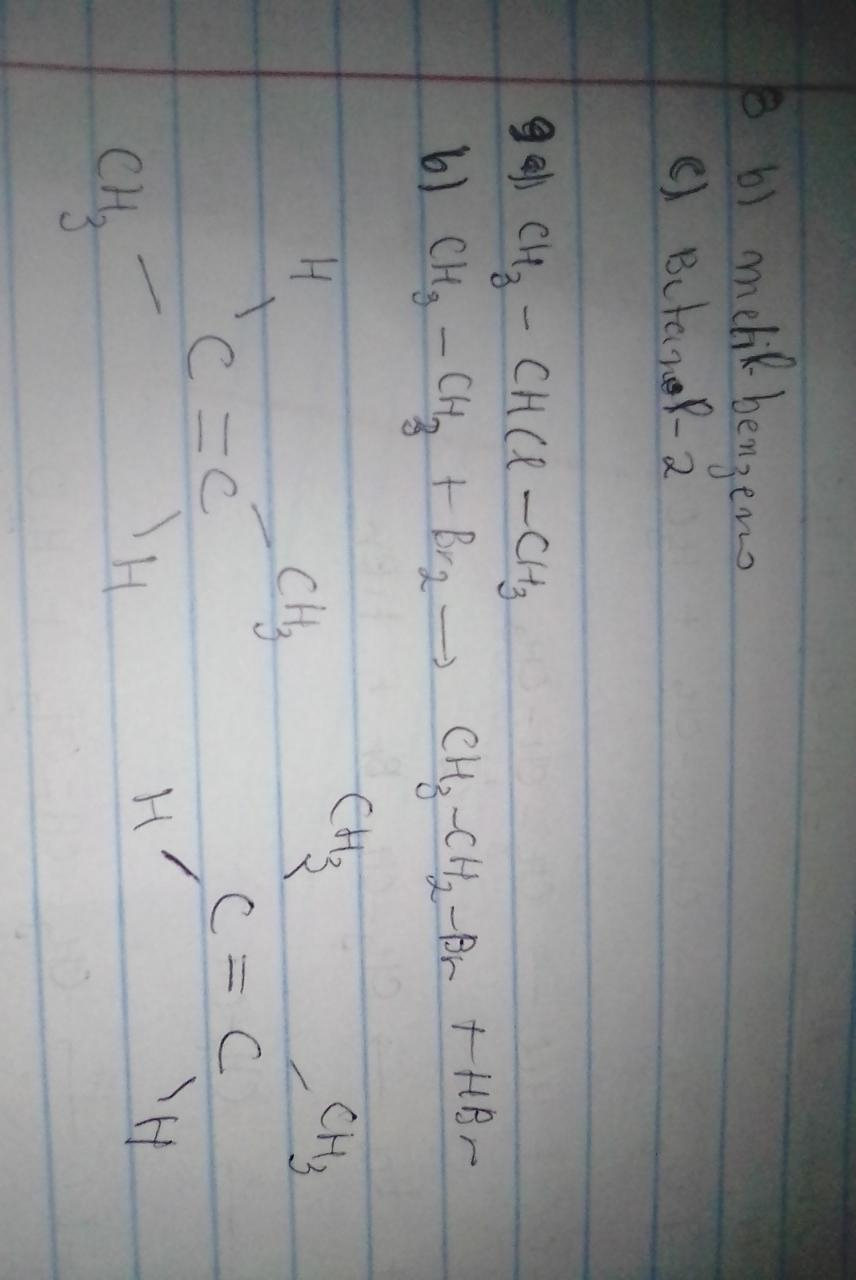 8 b) metil-benzeno
c) Butanol-2
9 a) CH₃ – CHCl – CH₃
b) CH₃ – CH₃ + Br₂ → CH₃ – CH₂ – Br + HBr
H CH₃ CH₃ CH₃
C = C C = C
CH₃ H H H